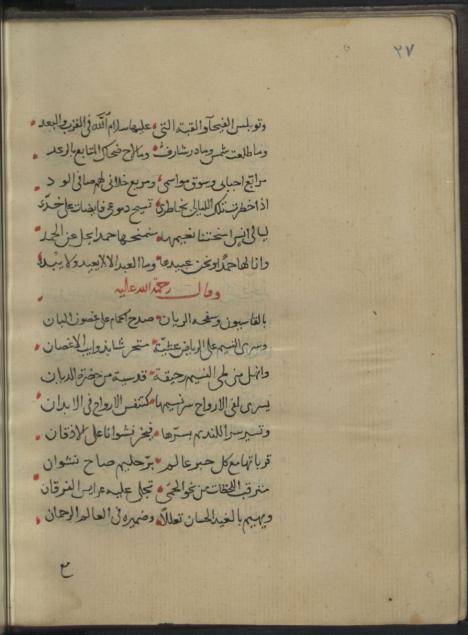 ٢٧
وتوبلس الفيحاء والقبة التي * عليها سلام الله في القرب والبعد
وما طلعت شمس وما در شارق * وما لاح ضحاك المتابع بالرعد
مرابع احبابي وسوق مواسمي * ومربع خلاني لهم صافي الود
اذا خطرت تلك الليالي بخاطري * تسيح دموعي فايضات على خدي
ليالي انس اسختنا نعيمها * سنمنحها حمدا يجل عن الحمد
وانا لها حمدا ونحن عبيدها * وما العبد الا لا يعيد ولا يبدا
وقال رحمة الله عليه
بالقاسيون وسفحه الريان * صدح الحمام على غصون البان
وسرى النسيم على الرياض عشية * متحرشا بذوايب الاغصان
وانهل من لمى النسيم رحيقة * قدسية من حضرة الديان
يسري لفي الارواح سر نسيمها * كتنفس الارواح في الابدان
وتسير سر اللندبم بسرها * فيخر نشوانا على الاذقان
قرباتها مع كل حبر عالم * برحليم صاح نشوان
مترقب اللمحات من نحو الحمى * تجلى عليه عرايس الفرقان
ويهيم بالغيد الحسان تعللا * وضميره في العالم الرحمان